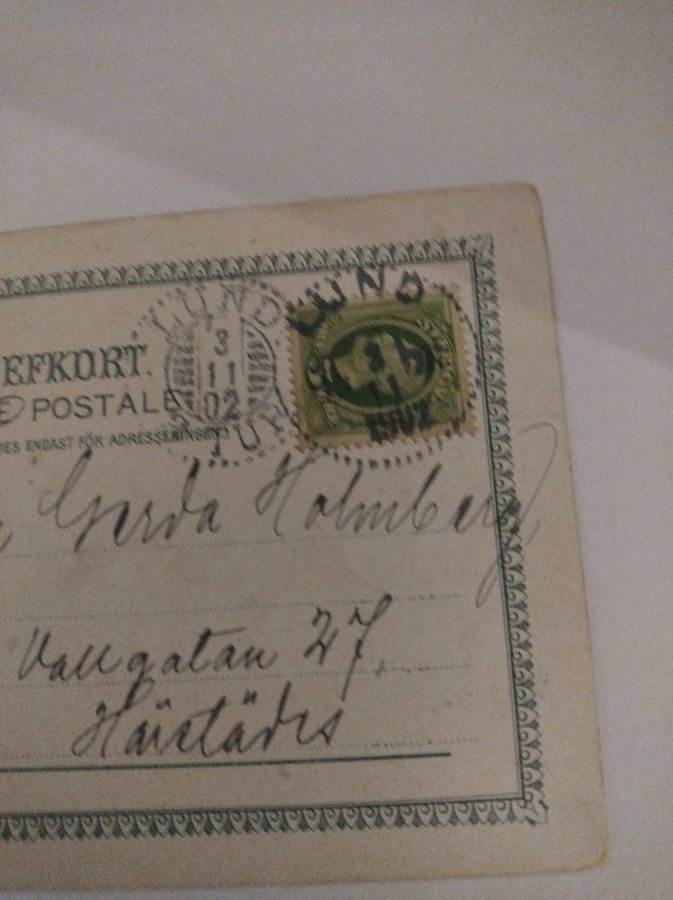 EFKORT.
POSTALE
DES ENDAST FÖR ADRESSERINGEN)
LUND
3
11
02
LUND
11
1902
Gerda Holmberg
Vallgatan 27,
Härstädes